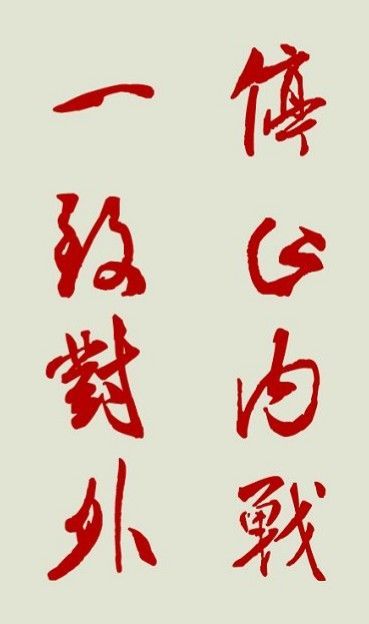 停止内戰
一致對外